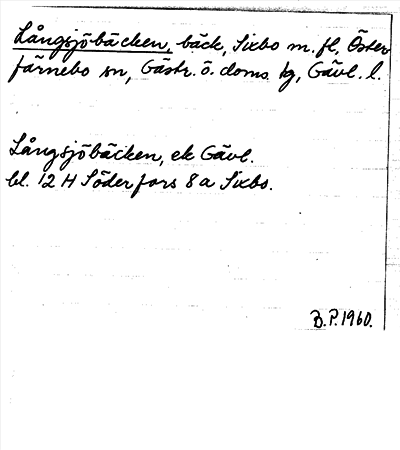 Långsjöbäcken, bäck, Sixbo m.fl, Öster
färnebo sn, Gästr. ö. doms. kg, Gävl. l.
Långsjöbäcken, ek Gävl.
bl. 12 H Söderfors 8 a Sixbo.
B.P. 1960.